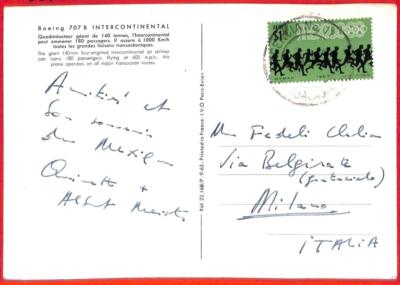 Boeing 707 B INTERCONTINENTAL
Quadriréacteur géant de 140 tonnes, l'Intercontinental
peut emmener 180 passagers. Il assure à 1000 Km/h
toutes les grandes liaisons transocéaniques.
The giant 140-ton four-engined Intercontinental jet airliner
can carry 180 passengers, flying at 600 m.p.h., this
plane operates on all major transocean routes.
Amitiés et
bon souvenir
du Mexique
+
Albert
Printed in France
I.V.O Paris-Evian
Fedeli Clelia
Via Belgirate
Milano
ITALIA